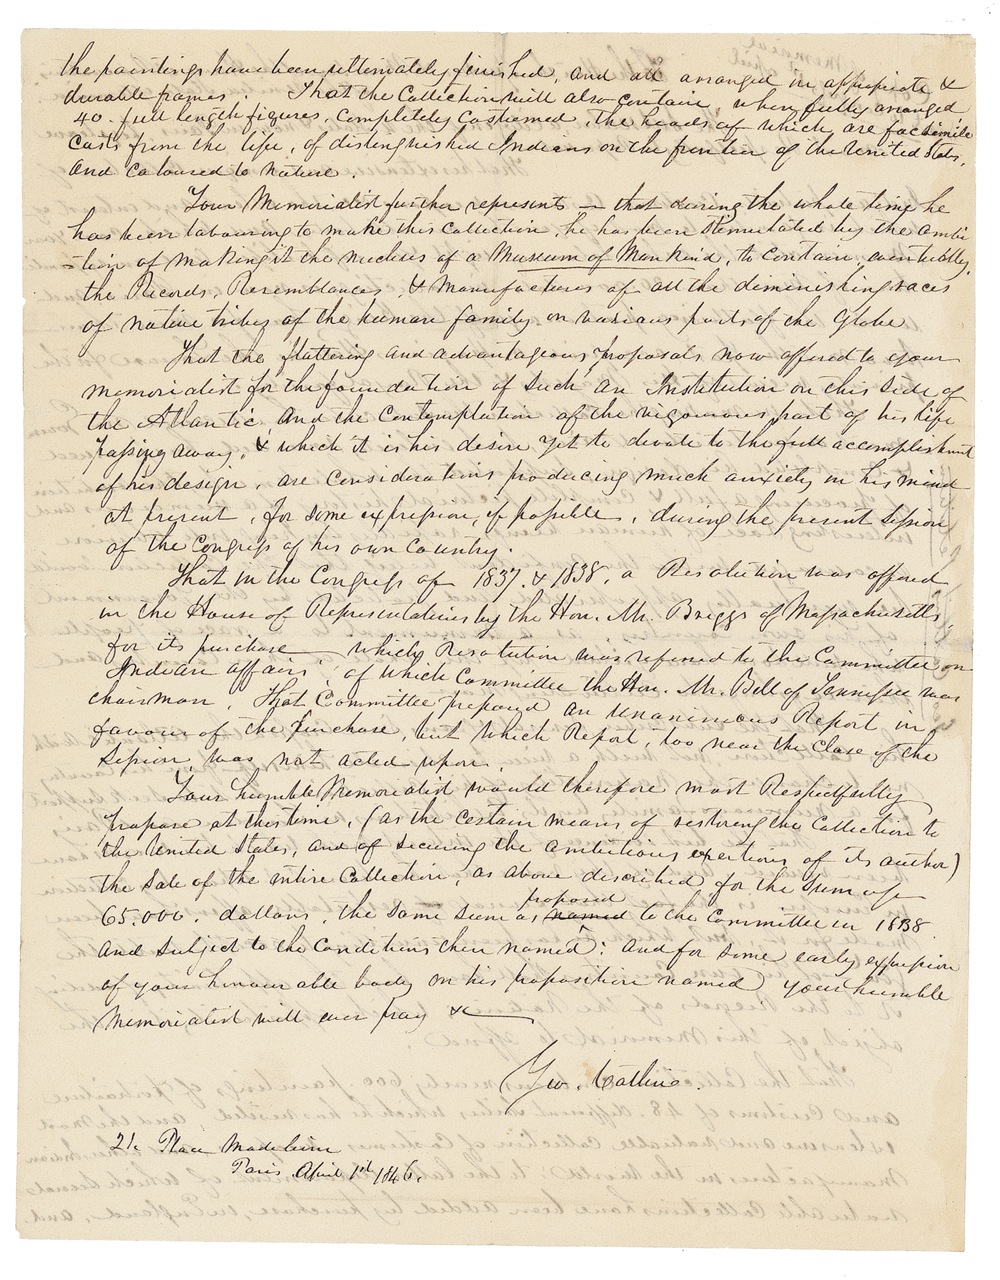 the paintings have been ultimately finished, and all arranged in appropriate &
durable frames. That the Collection will also contain, when fully arranged
40. full length figures, Completely Costumed, the heads of which are facsimile
Casts from the life, of distinguished Indians on the frontier of the United States,
and coloured to nature.
Your Memorialist further represents — that during the whole time he
has been labouring to make this Collection, he has been stimulated by the ambi
-tion of making it the nucleus of a Museum of Mankind, to contain, eventually,
the Records, Resemblances, & Manufactures of all the diminishing races
of native tribes of the human family on various parts of the Globe
That the flattering and advantageous proposals now offered to your
memorialist for the foundation of such an Institution on this side of
the Atlantic and the contemplation of the vigourous part of his life
passing away, & which it is his desire yet to devote to the full accomplishment
of his design, are considerations producing much anxiety in his mind
at present, for some expression, if possible, during the present Session
of the Congress of his own Country.
That in the Congress of 1837. & 1838. a Resolution was offered
in the House of Representatives by the Hon. Mr. Briggs of Massachusetts,
for its purchase — which Resolution was referred to the Committee on
Indian affairs, of which Committee the Hon. Mr. Bell of Tennessee was
chairman. That Committee prepared an unanimous Report in
favour of the purchase, but which Report, too near the Close of the
Session, was not acted upon.
Your humble Memorialist would therefore most Respectfully
propose at this time, (as the certain means of restoring the Collection to
the United States, and of securing the ambitious exertions of its author)
the Sale of the entire Collection, as above described, for the Sum of
proposed
65.000. dollars, the same sum as named to the Committee in 1838
and subject to the Conditions then named: and for some early expression
of your honourable body on his proposition named your humble
Memorialist will ever pray &c
Geo. Catlin.
21. Place Madeleine
Paris April 1st 1846.